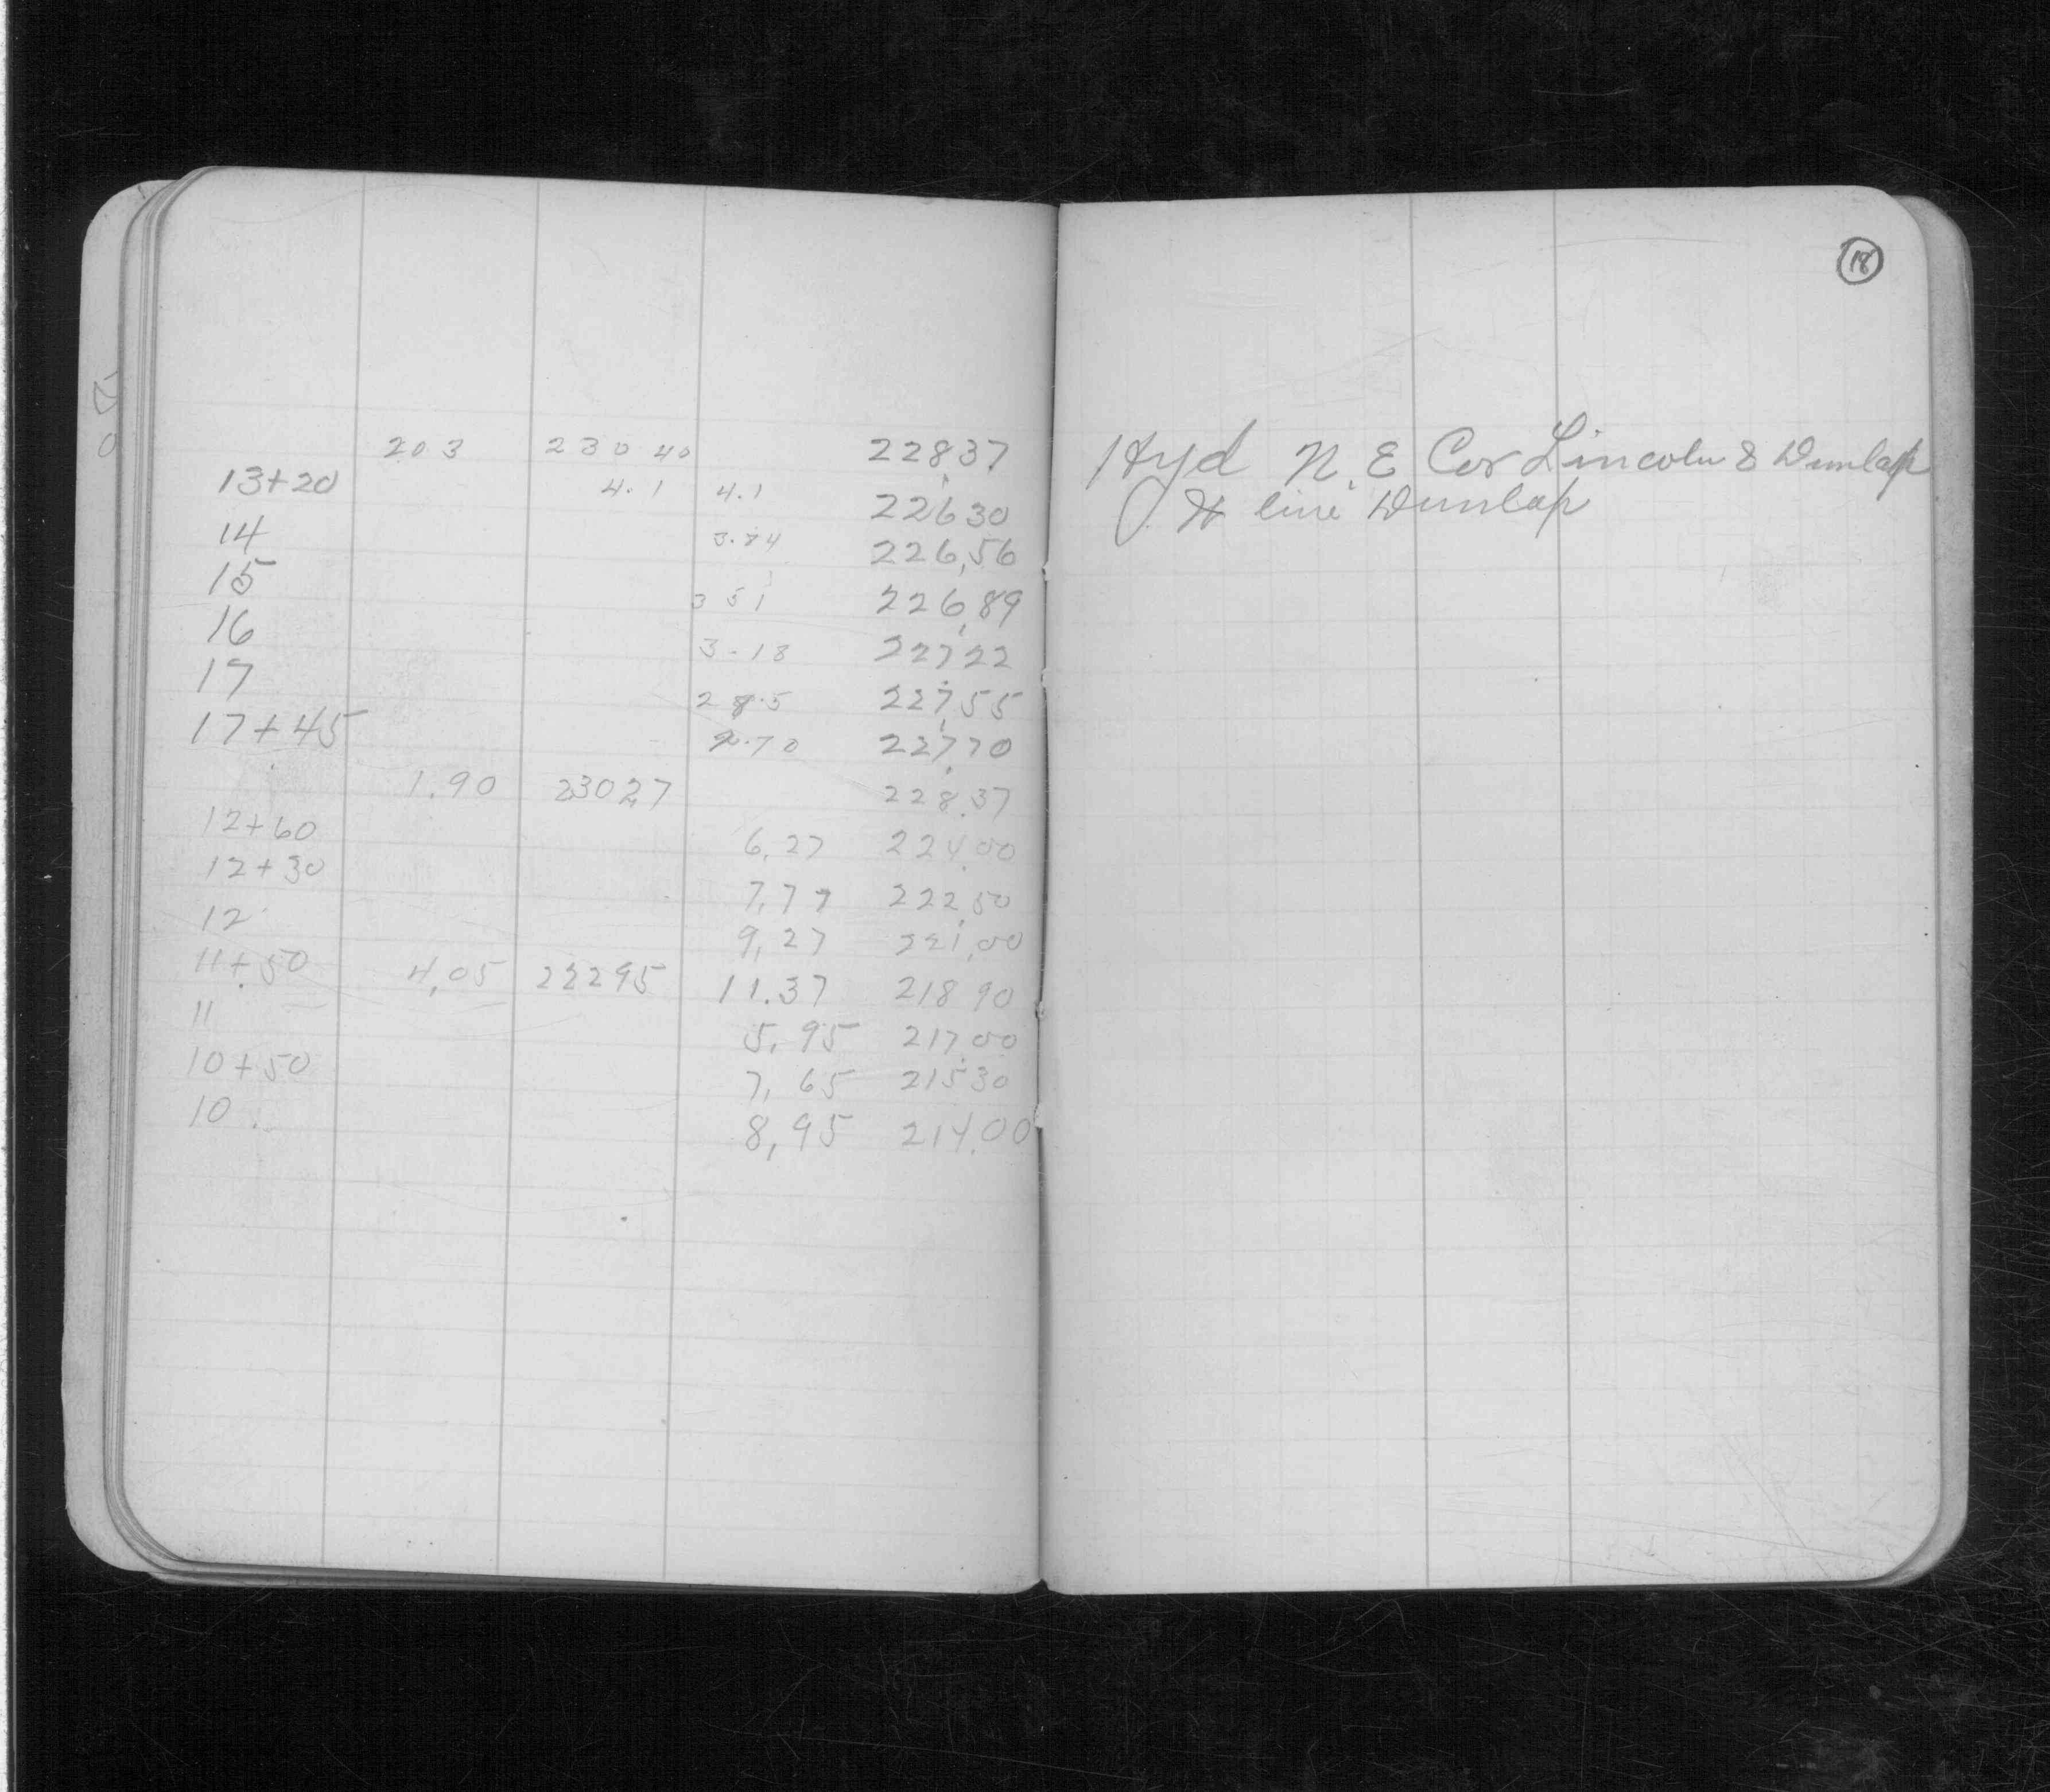 18
203 230 40 228.37 Hyd N.E Cor Lincoln & Dunlap
13+20 4.1 4.1 226 30 line Dunlap
14 3.84 226.56
15 3 51 226.89
16 3.18 227.22
17 2 8.5 227.55
17+45 2.70 227.70
1.90 230.27 228.37
12+60 6.27 224.00
12+30 7.77 222.50
12 9.27 221.00
11+50 4.05 222 95 11.37 218 90
11 5.95 217.00
10+50 7.65 215.30
10 8.95 214.00